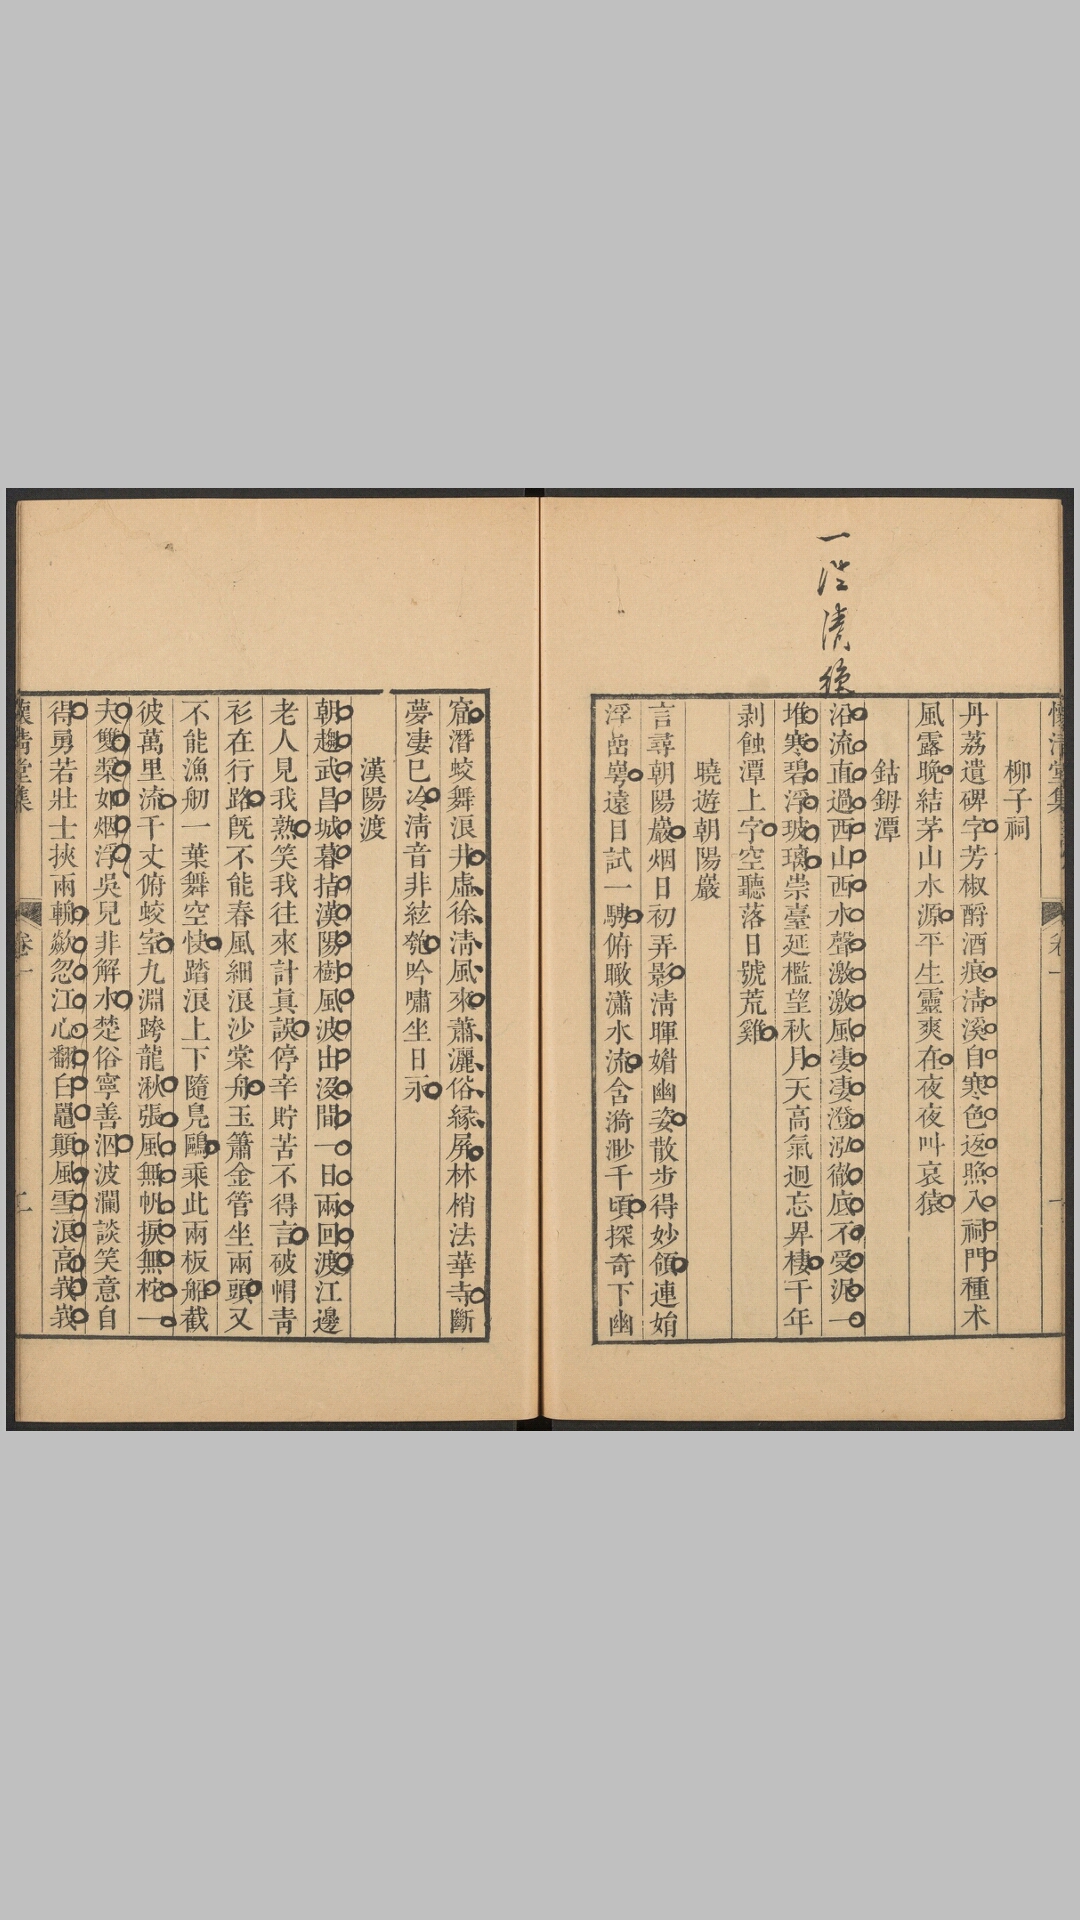 柳子祠
丹荔遺碑字芳椒酹酒痕淸溪自寒色返照入祠門種木
風露晚結茅山水源平生靈爽在夜夜叫哀猿
鈷鉧潭
沿流直過西山西水聲激激風凄凄澄泓徹底不受泥一
堆寒碧浮玻璃崇臺延檻望秋月天高氣迥忘昇棲千年
剥蝕潭上字空聽落日號荒雞
曉遊朝陽巖
言尋朝陽巖烟日初弄影淸暉媚幽姿散步得妙領連娟
浮嵒崿遠目試一騁俯瞰瀟水流含漪渺千頃探奇下幽
窟潛蛟舞浪井虛徐淸風來蕭灑俗緣屏林梢法華寺斷
夢凄巳冷淸音非絃匏吟嘯坐日永
漢陽渡
朝趨武昌城暮指漢陽樹風波出沒間一日兩回渡江邊
老人見我熟笑我往來計眞誤停辛貯苦不得言破帽靑
衫在行路旣不能春風細浪沙棠舟玉簫金管坐兩頭又
不能漁舠一葉舞空快踏浪上下隨鳧鷗乘此兩板船截
彼萬里流千丈俯蛟室九淵跨龍湫張風無帆捩無柁一
夫雙槳如烟浮吳兒非解水楚俗寧善泅波瀾談笑意自
得勇若壯士挾兩輈歘忽江心翻白黿顚風雪浪高峩峩
懷淸堂集
卷一
一泓淸絶